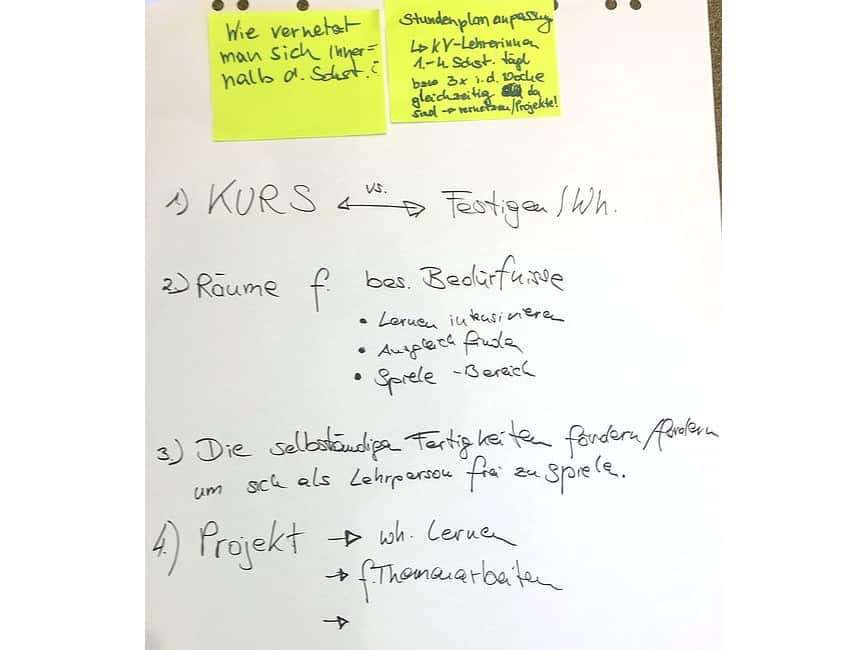 Wie vernetzt
man sich inner=
halb d. Schst.?
Stundenplananpassung
↳ KV-Lehrerinnen
1.-4. Schst. tägl
bzw 3x i.d. Woche
gleichzeitig da
sind → vernetzen/Projekte!
1.) KURS ←vs.→ Festigen/Wh.
2.) Räume f. bes. Bedürfnisse
• Lernen intensivieren
• Ausgleich finden
• Spiele-Bereich
3.) Die selbständigen Fertigkeiten fördern/fordern
um sich als Lehrperson frei zu spielen.
4.) Projekt → wh. Lernen
→ f. Themenarbeiten
→